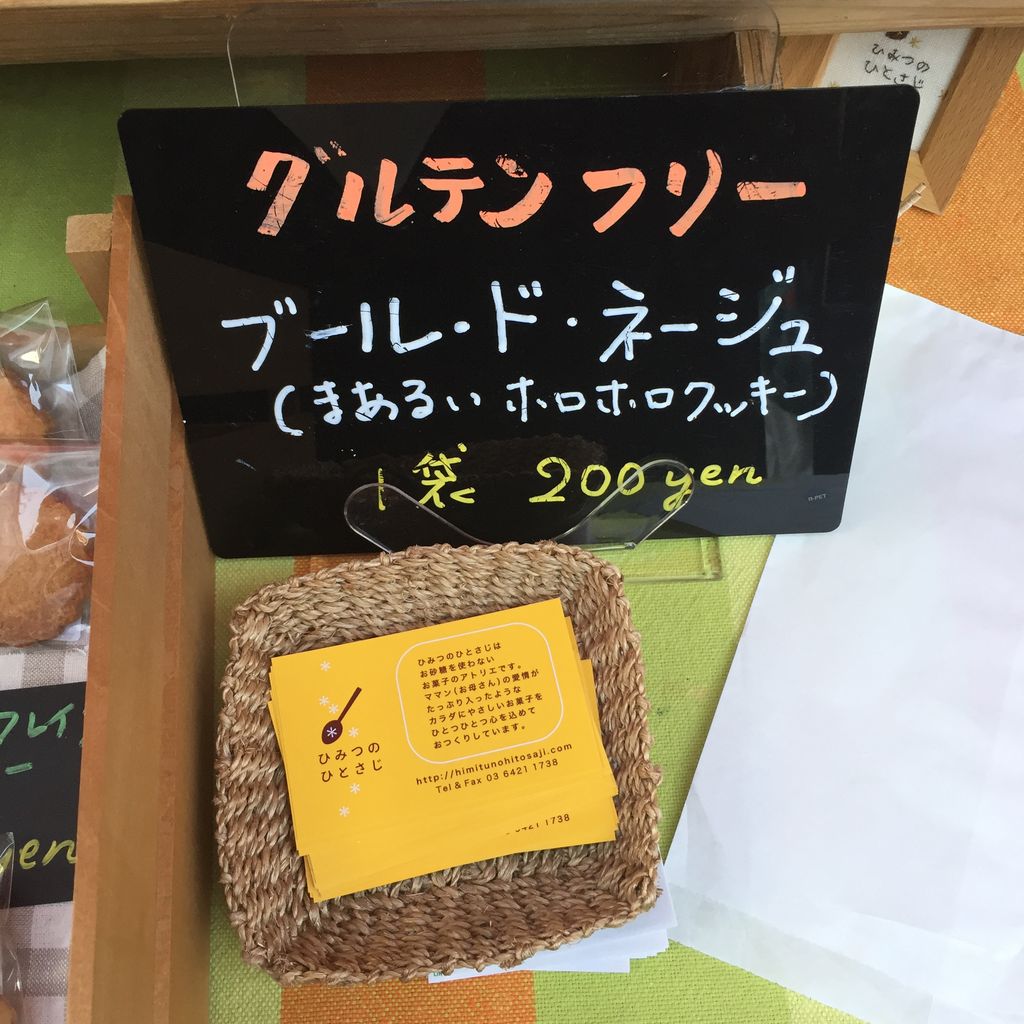 ひみつの
ひとさじ
グルテンフリー
ブール・ド・ネージュ
(まあるい ホロホロクッキー)
1袋 200yen
ひみつのひとさじは
お砂糖を使わない
お菓子のアトリエです。
ママン(お母さん)の愛情が
たっぷり入ったような
カラダにやさしいお菓子を
ひとつひとつ心を込めて
おつくりしています。
ひみつの
ひとさじ
http://himitunohitosaji.com
Tel & Fax 03 6421 1738
6421 1738
フレイ
ー
yen